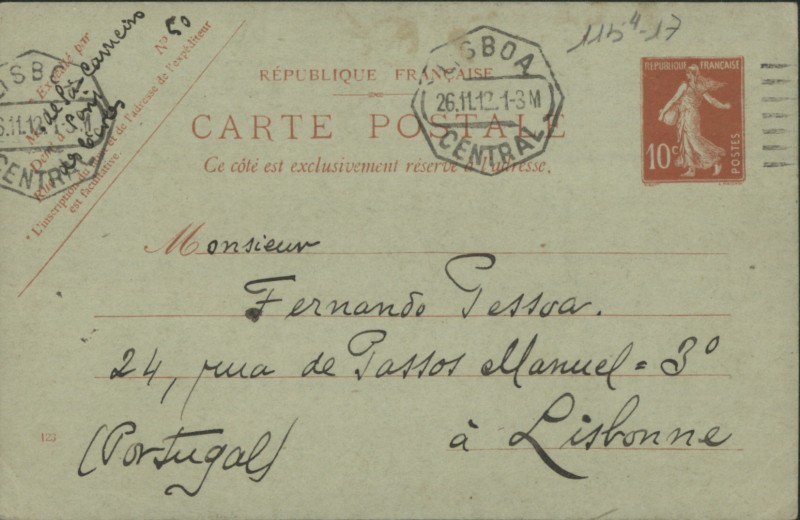 115⁴-17
RÉPUBLIQUE FRANÇAISE
CARTE POSTALE
Ce côté est exclusivement réservé à l'adresse.
RÉPUBLIQUE FRANÇAISE
10c
POSTES
LISBOA
26.11.12.1-3M
CENTRAL
LISBOA
26.11.12.1-3M
CENTRAL
Nº 50
Expédié par
de Sá Carneiro
Paris
* L'inscription du et de l'adresse de l'expéditeur
est facultative.
Monsieur
Fernando Pessoa.
24, rua de Passos Manuel = 3º
à Lisbonne
(Portugal)
123